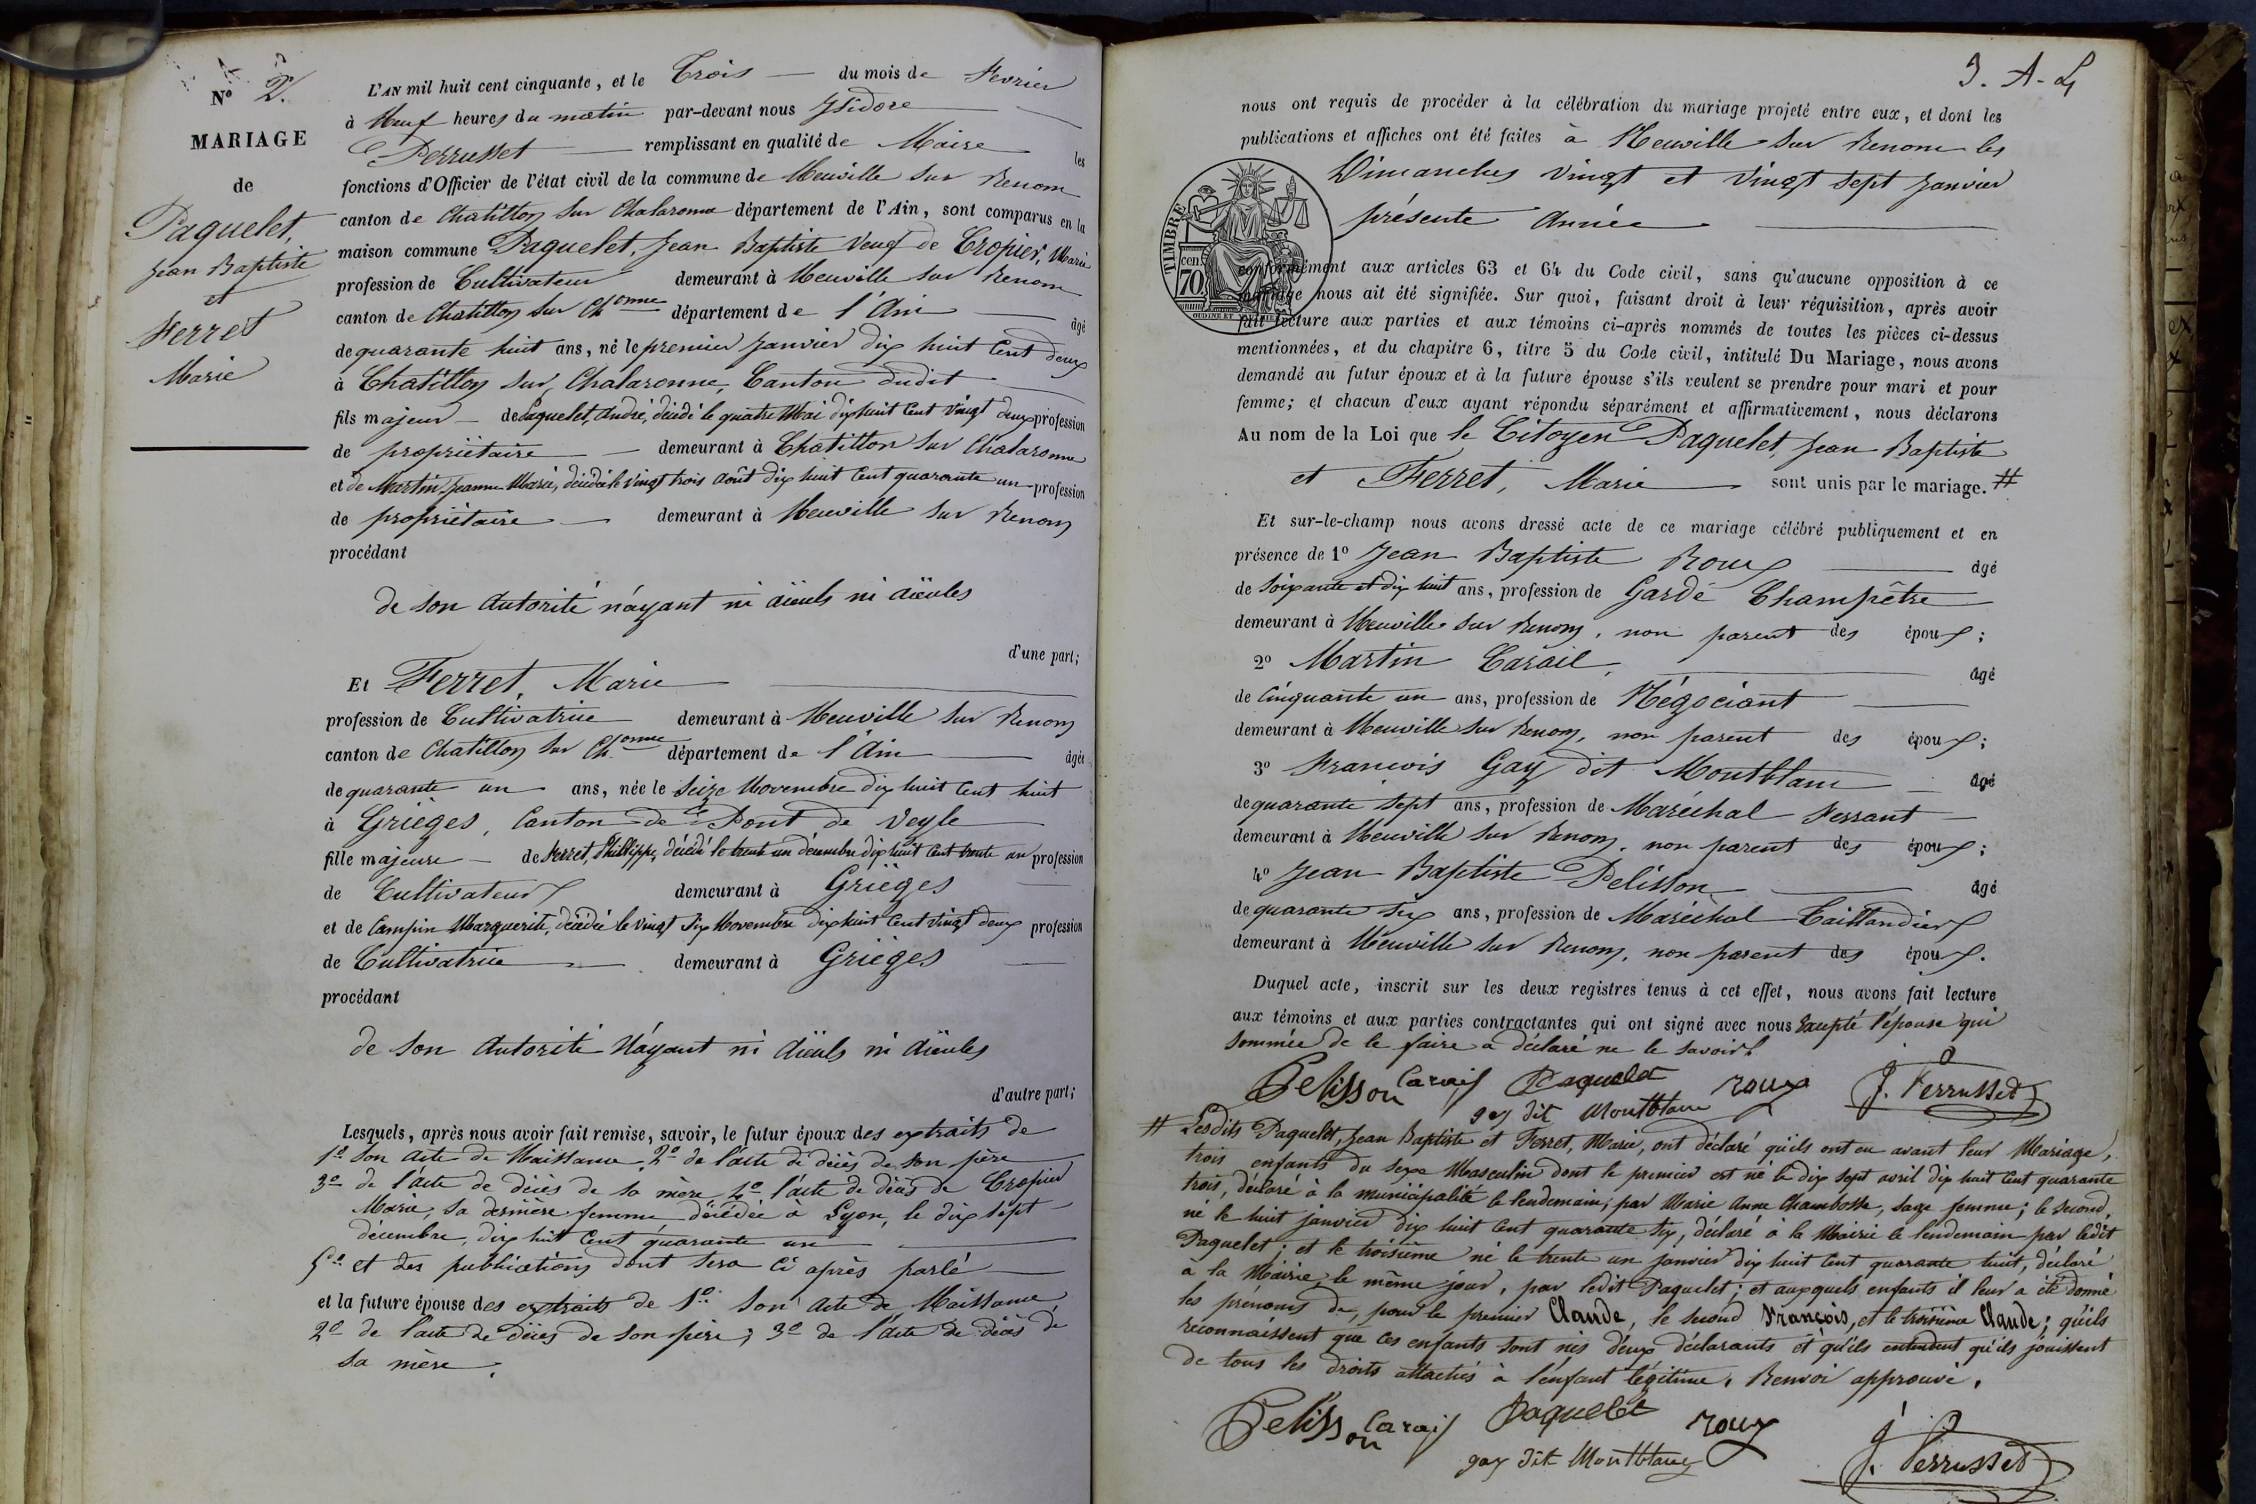 N° 2.
MARIAGE
de
Paquelet,
Jean Baptiste
et
Ferret
Marie
L'AN mil huit cent cinquante, et le Trois du mois de Fevrier
à Neuf heures du matin par-devant nous Isidore
Perrusset remplissant en qualité de Maire les
fonctions d'Officier de l'état civil de la commune de Neuville sur Renom
canton de Chatillon sur Chalaronne département de l'Ain, sont comparus en la
maison commune Paquelet, Jean Baptiste Veuf de Cropier, Marie
profession de Cultivateur demeurant à Neuville sur Renom
canton de Chatillon sur Ch.onne département de l'Ain âgé
de quarante huit ans, né le premier Janvier dix huit Cent deux
à Chatillon sur Chalaronne, Canton dudit
fils majeur de Paquelet, André, décédé le quatre Mai dix huit Cent Vingt deux profession
de propriétaire demeurant à Chatillon sur Chalaronne
et de Martin Jeanne Marie, décédée le vingt trois Août dix huit Cent quarante un profession
de propriétaire demeurant à Neuville sur Renom
procédant
de son Autorité n'ayant ni aïeuls ni aïeules
d'une part;
Et Ferret, Marie
profession de Cultivatrice demeurant à Neuville sur Renom
canton de Chatillon sur Ch.onne département de l'Ain âgée
de quarante un ans, née le Seize Novembre dix huit Cent huit
à Grièges, Canton de Pont de Veyle
fille majeure de Ferret, Phillippe, décédé le trente un décembre dix huit Cent trente un profession
de Cultivateur demeurant à Grièges
et de Campin Marguerite, décédée le vingt Six Novembre dix huit Cent Vingt deux profession
de Cultivatrice demeurant à Grièges
procédant
de son Autorité N'ayant ni Aïeuls ni Aïeules
d'autre part;
Lesquels, après nous avoir fait remise, savoir, le futur époux des extraits de
1° Son Acte de Naissance, 2° de l'acte de décès de son père
3° de l'acte de décès de sa mère 4° l'acte de décès de Cropier
Marie, sa dernière femme décédée à Lyon, le dix sept
décembre, dix huit Cent quarante un
5° et des publications dont sera Ci après parlé
et la future épouse des extraits de 1° Son Acte de Naissance
2° de l'acte de décès de son père; 3° de l'acte de décès de
sa mère.
nous ont requis de procéder à la célébration du mariage projeté entre eux, et dont les
publications et affiches ont été faites à Neuville sur Renom les
Dimanches Vingt et Vingt sept Janvier
présente Année
TIMBRE
70 cen.
conformément aux articles 63 et 64 du Code civil, sans qu'aucune opposition à ce
mariage nous ait été signifiée. Sur quoi, faisant droit à leur réquisition, après avoir
fait lecture aux parties et aux témoins ci-après nommés de toutes les pièces ci-dessus
mentionnées, et du chapitre 6, titre 5 du Code civil, intitulé Du Mariage, nous avons
demandé au futur époux et à la future épouse s'ils veulent se prendre pour mari et pour
femme; et chacun d'eux ayant répondu séparément et affirmativement, nous déclarons
Au nom de la Loi que le Citoyen Paquelet, Jean Baptiste
et Ferret, Marie sont unis par le mariage. #
Et sur-le-champ nous avons dressé acte de ce mariage célébré publiquement et en
présence de 1° Jean Baptiste Roux âgé
de Soixante et dix huit ans, profession de Garde Champêtre
demeurant à Neuville sur Renom, non parent des époux;
2° Martin Carail, âgé
de Cinquante un ans, profession de Négociant
demeurant à Neuville sur Renom, non parent des époux;
3° Francois Gay dit Montblanc âgé
de quarante sept ans, profession de Maréchal Ferrant
demeurant à Neuville sur Renom, non parent des époux;
4° Jean Baptiste Pelisson âgé
de quarante six ans, profession de Maréchal Taillandier
demeurant à Neuville sur Renom, non parent des époux.
Duquel acte, inscrit sur les deux registres tenus à cet effet, nous avons fait lecture
aux témoins et aux parties contractantes qui ont signé avec nous Excepté l'épouse qui
sommée de le faire a déclaré ne le savoir.
Pelisson Carail Paquelet roux J. Perrusset
gay dit Montblanc
# Lesdits Paquelet, Jean Baptiste et Ferret, Marie, ont déclaré qu'ils ont eu avant leur Mariage,
trois enfants du sexe Masculin dont le premier est né le dix sept avril dix huit Cent quarante
trois, déclaré à la municipalité le lendemain; par Marie Anne Chambosse, sage femme; le second,
né le huit janvier dix huit Cent quarante six, déclaré à la Mairie le lendemain par ledit
Paquelet; et le troisième né le trente un janvier dix huit Cent quarante huit, déclaré
à la Mairie, le même jour, par ledit Paquelet; et auxquels enfants il leur a été donné
les prénoms de, pour le premier Claude, le second François, et le troisième Claude; qu'ils
reconnaissent que ces enfants sont nés d'eux déclarants et qu'ils entendent qu'ils jouissent
de tous les droits attachés à l'enfant légitime. Renvoi approuvé.
Pelisson Carail Paquelet roux
gay dit Montblanc J. Perrusset